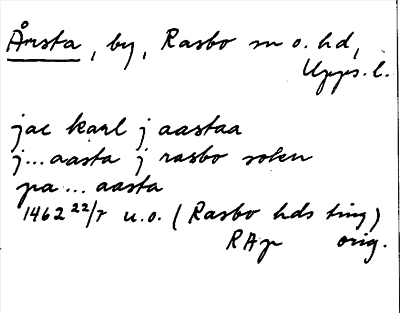 Årsta, by, Rasbo sn o. hd,
Upps. l.
jac karl j aastaa
j...aasta j rasbo sokn
pa ... aasta
1462 22/7 u.o. (Rasbo hds ting)
RAp orig.